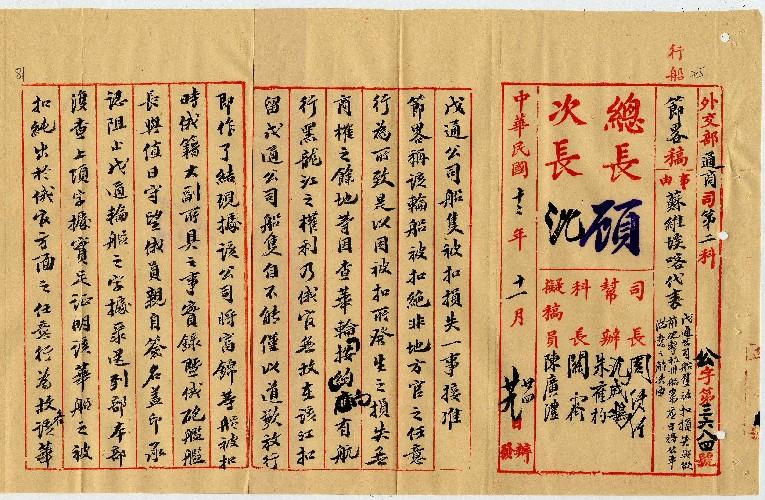 行船
外交部通商司第二科
公字第三六八四號
節畧稿
事由
蘇維埃喀代表
戊通公司船隻被扣損失
總長 顧
次長 沈
司長 周
幫辦 朱
科長 關霽
擬稿員 陳廣澧
中華民國十三年十一月 日辦
戊通公司船隻被扣損失一事接准
節畧稱該輪船被扣絕非地方官之任意
行為所致是以因被扣所發生之損失無
商榷之餘地等因查華輪按約有航
行黑龍江之權利乃俄官無故在該江扣
留戊通公司船隻自不能僅以道歉放行
即作了結現據該公司將富錦等船被扣
時俄籍大副所具之事實錄暨俄砲艦艦
長與值日守望俄員親自簽名蓋印承
認阻止戊通輪船之字據彙送到部本部
澳查上項字據實足証明該華船之被
扣純出於俄官方面之任意行為故該華
81